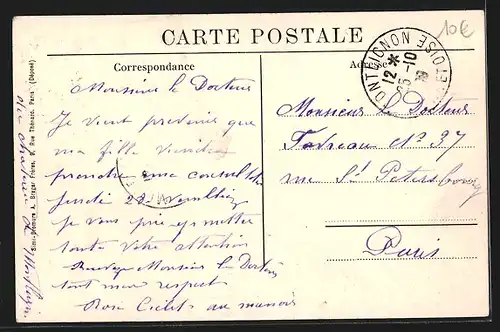 CARTE POSTALE
10€
Correspondance
Adresse
Monsieur le Docteur
Je vient prevenir que
ma fille viendra
prendre une consultation
jeudi 22
je vous prie y mettre
toute votre attention
Monsieur le Docteur
tout mon respect
Rose au manoir
Monsieur le Docteur
Nº 37
rue St Petersbourg
Paris
MONTLIGNON
SEINE-ET-OISE
12 *
25 -10
Simi-Bromure A. Breger Frères, 9, Rue Thénard, Paris (Déposé)